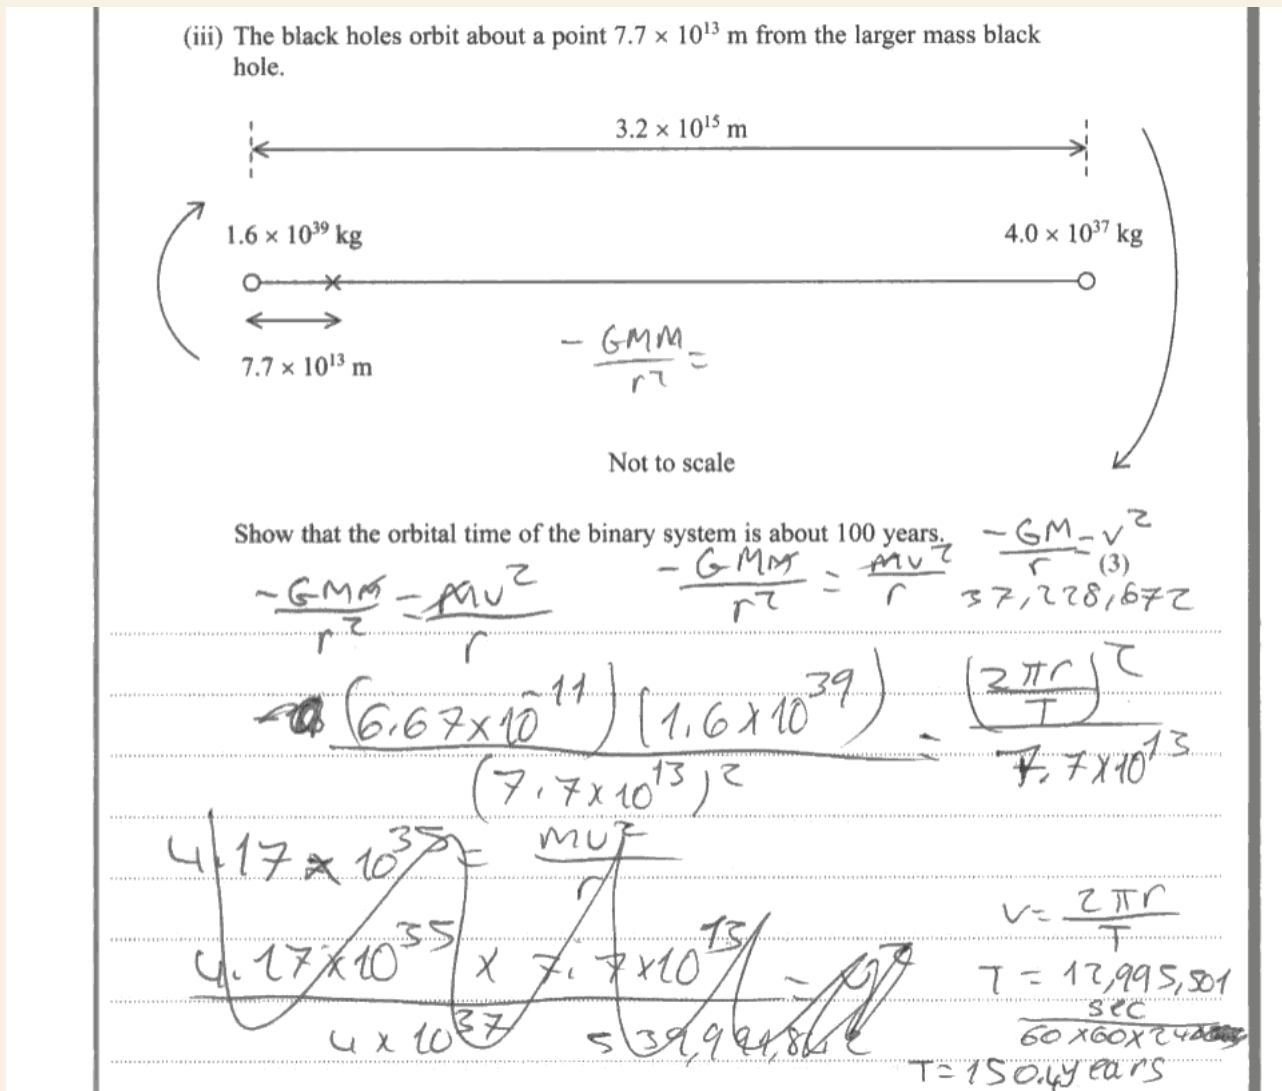 (iii) The black holes orbit about a point 7.7 × 10¹³ m from the larger mass black
hole.
3.2 × 10¹⁵ m
1.6 × 10³⁹ kg
4.0 × 10³⁷ kg
7.7 × 10¹³ m
- GMM/r² =
Not to scale
Show that the orbital time of the binary system is about 100 years.
(3)
-GMM/r² = mv²/r
-GMM/r² = mv²/r
-GM/r = v²
37,228,672
(6.67×10⁻¹¹)(1.6×10³⁹)/(7.7×10¹³)² = (2πr/T)²/7.7×10¹³
4.17 × 10³⁵ = mv²/r
4.17×10³⁵ × 7.7×10¹³ / 4 × 10³⁷ =
v = 2πr/T
T = 12,995,501
sec
60×60×24
T=150.4years